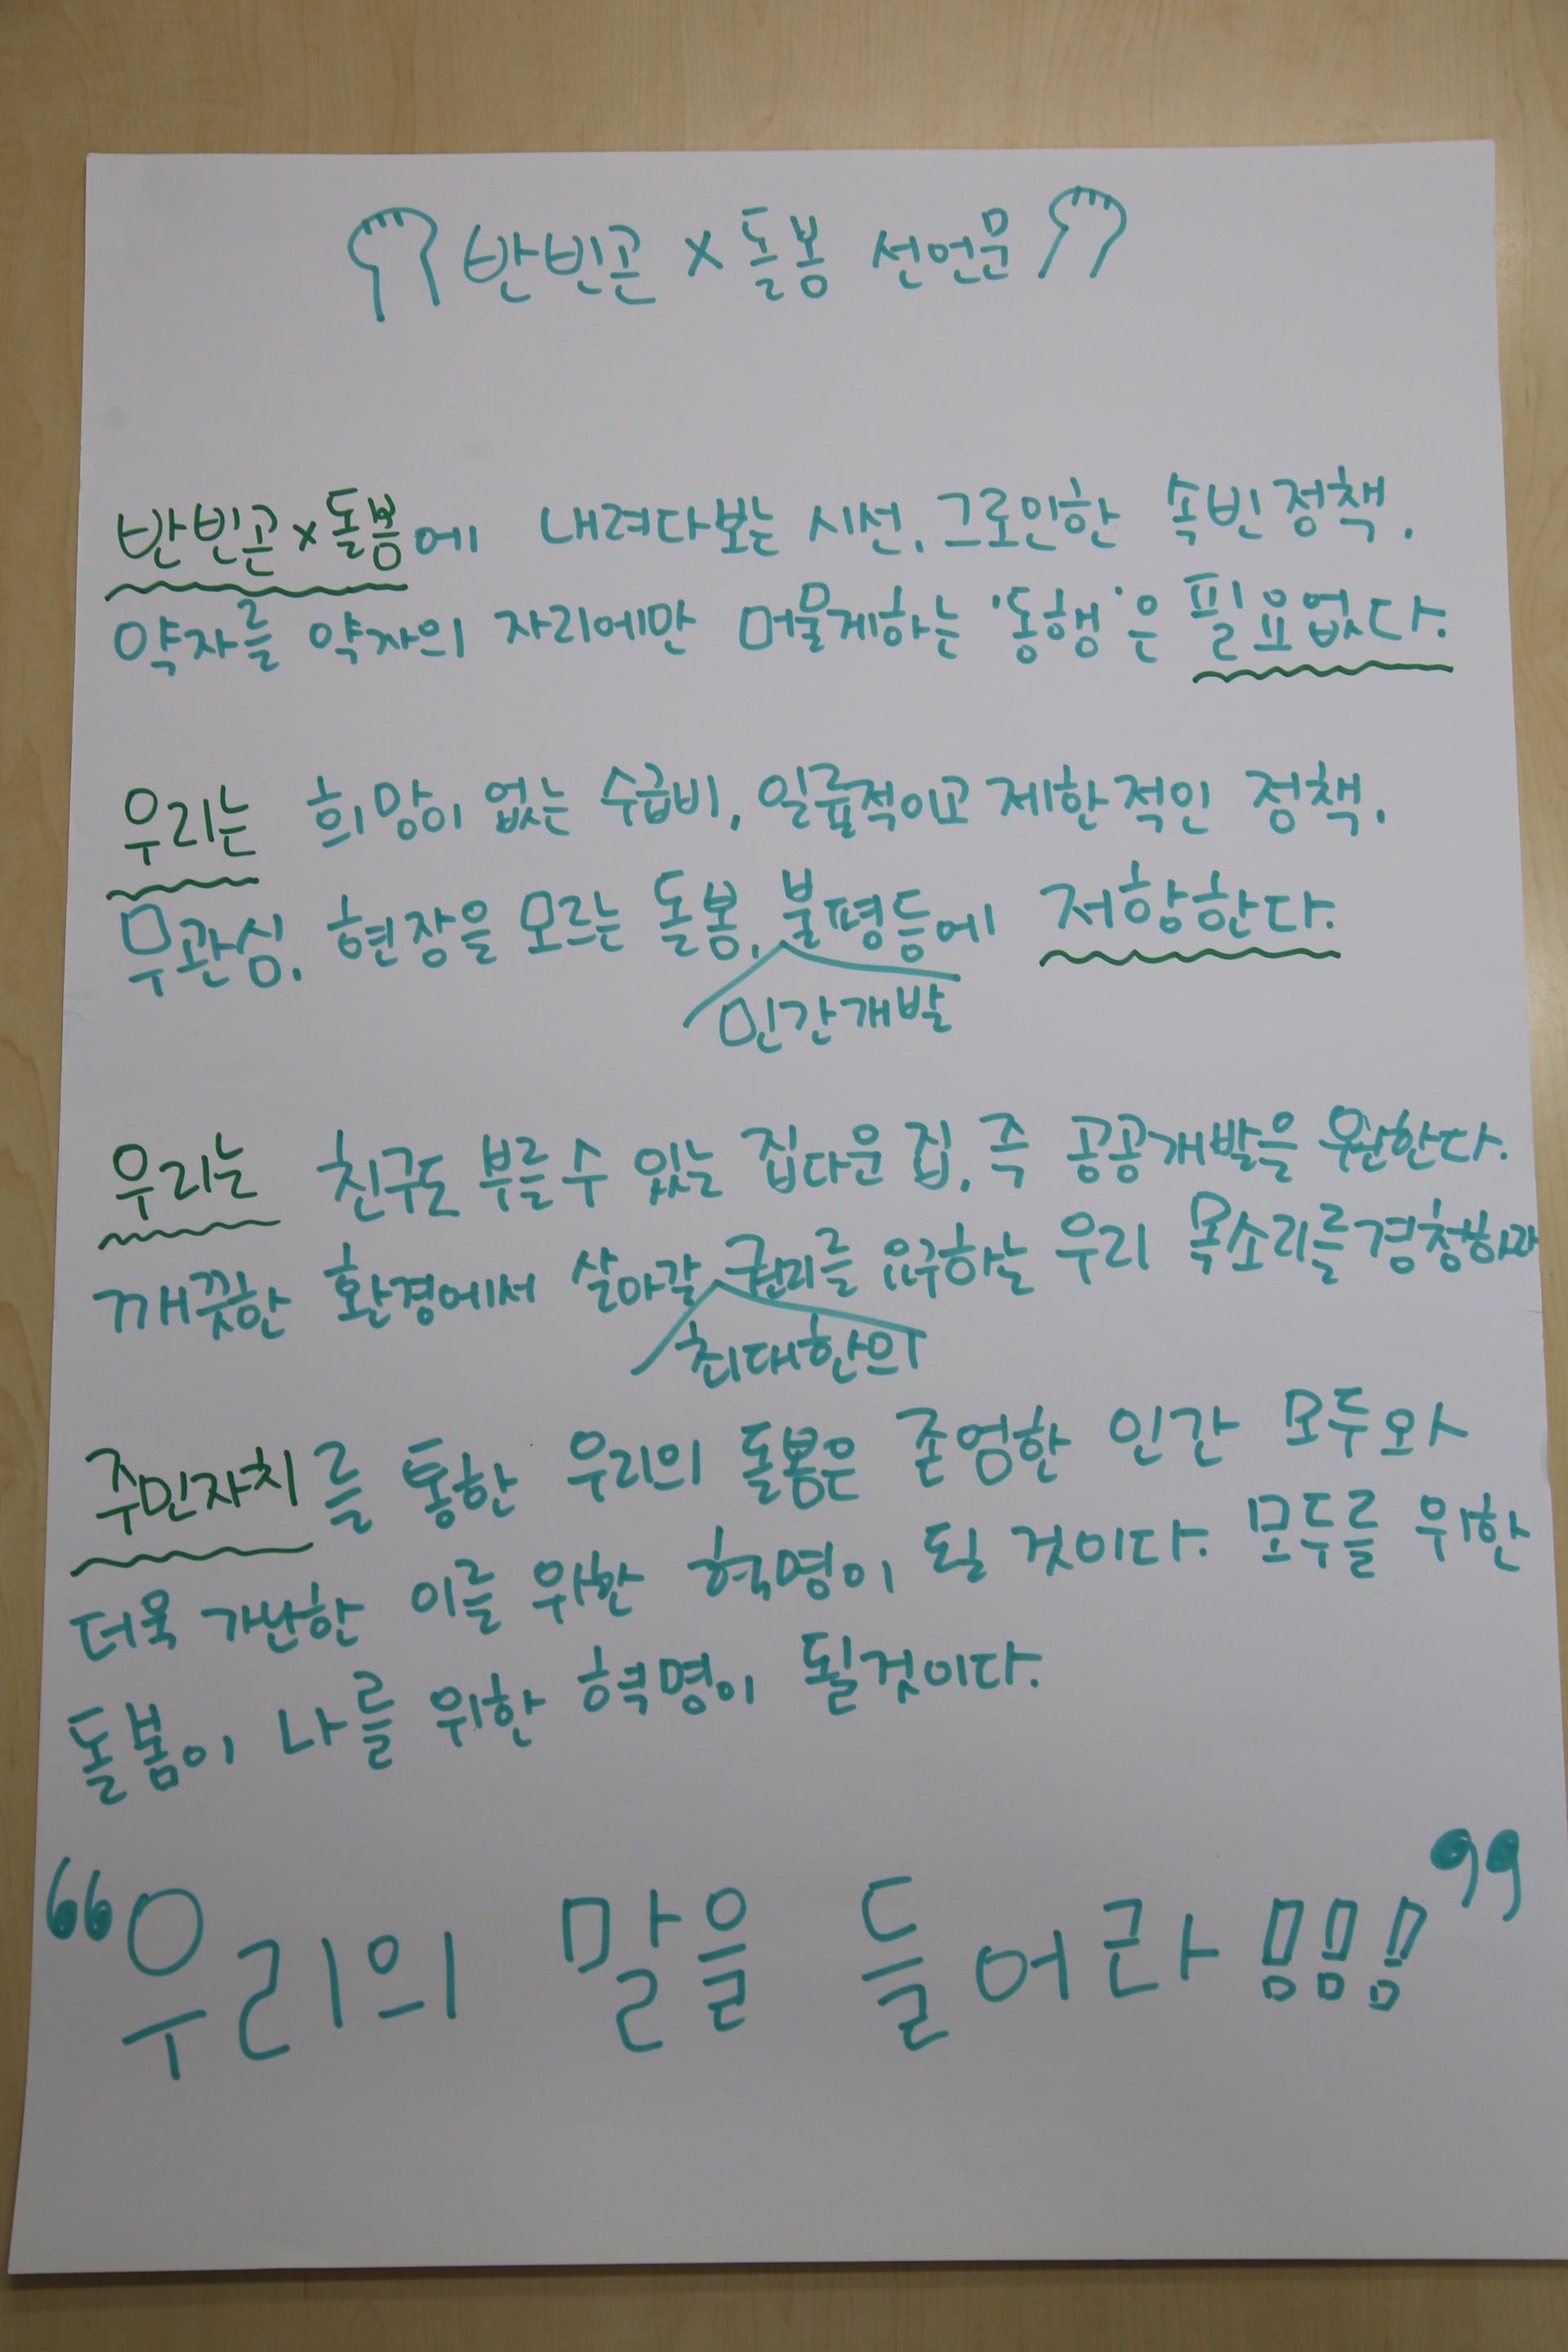 반빈곤 x 돌봄 선언문
반빈곤x돌봄에 내려다보는 시선, 그로인한 속빈정책.
약자를 약자의 자리에만 머물게하는 '동행'은 필요없다.
우리는 희망이 없는 수급비, 일률적이고 제한적인 정책.
무관심, 현장을 모르는 돌봄, 불평등에 저항한다.
민간개발
우리는 친구도 부를수 있는 집다운 집, 즉 공공개발을 원한다.
깨끗한 환경에서 살아갈 권리를 요구하는 우리 목소리를 경청하라
최대한의
주민자치를 통한 우리의 돌봄은 존엄한 인간 모두와
더욱 가난한 이를 위한 혁명이 될 것이다. 모두를 위한
돌봄이 나를 위한 혁명이 될것이다.
“우리의 말을 들어라!!!”